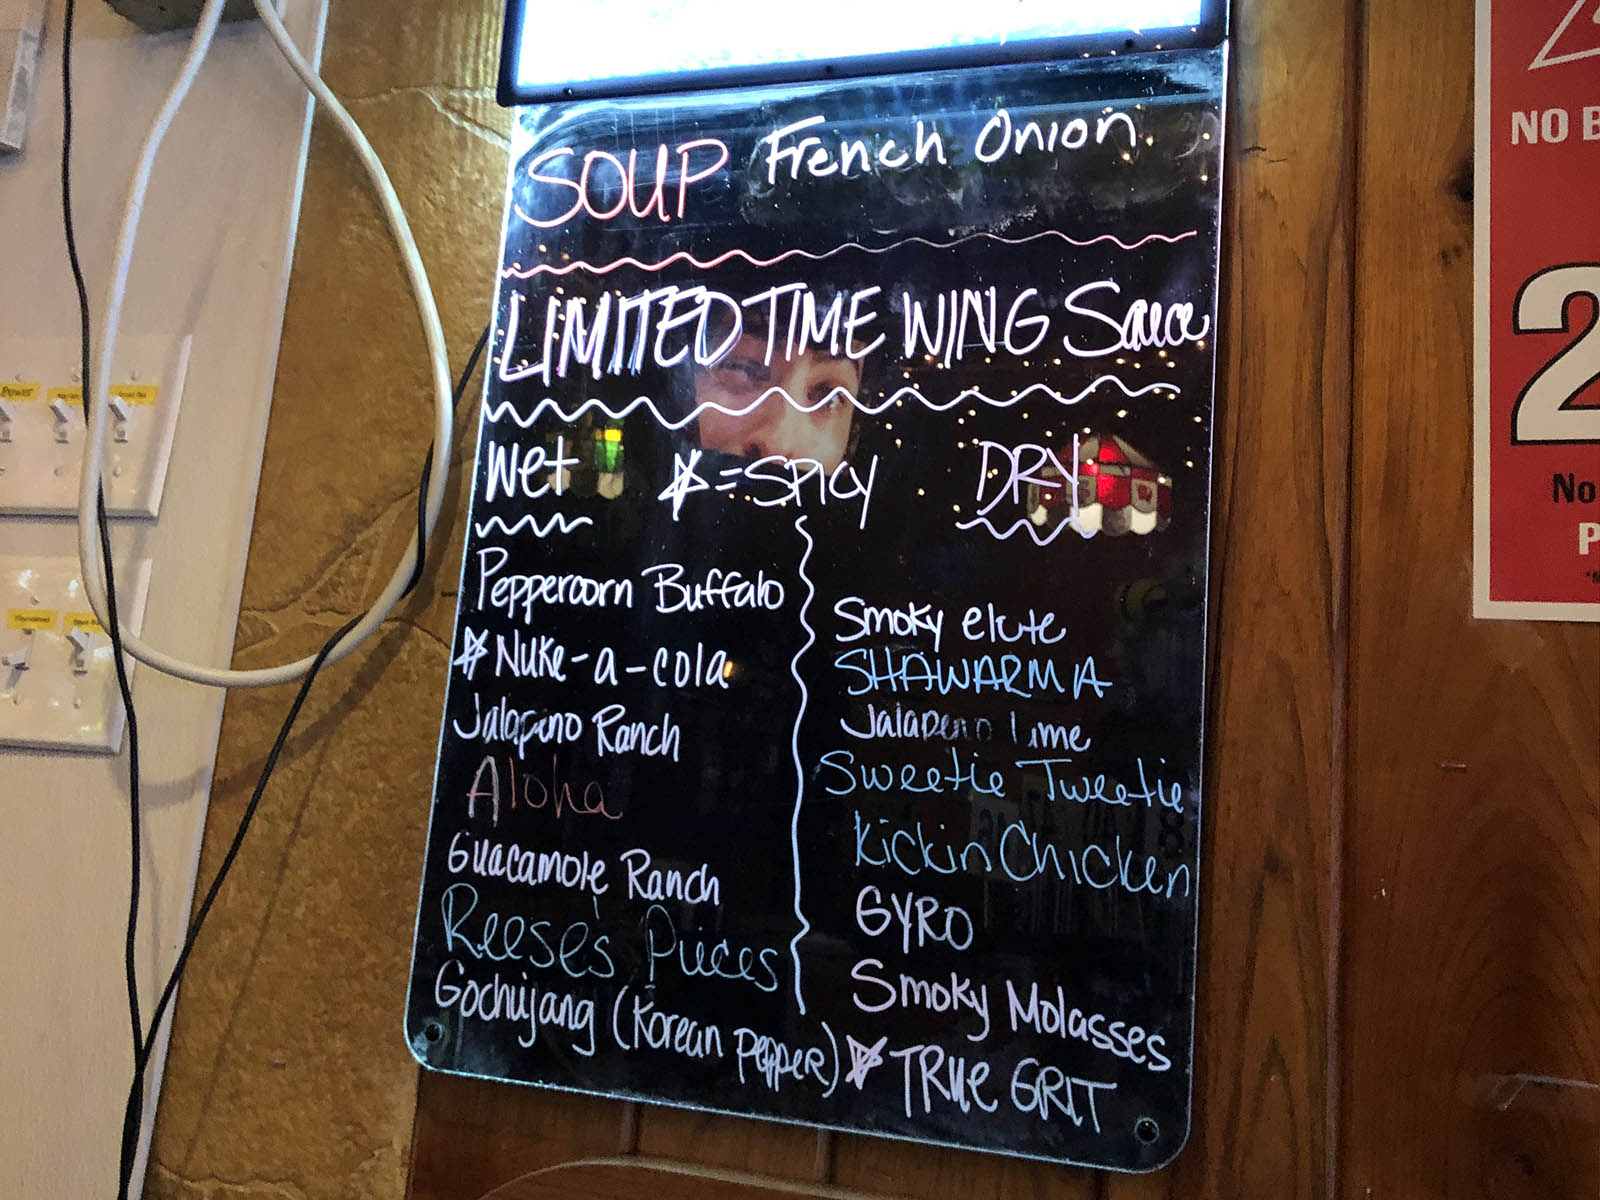 SOUP French Onion
LIMITED TIME WING Sauce
Wet ☆=SPICY DRY
Peppercorn Buffalo
☆ Nuke-a-cola
Jalapeno Ranch
Aloha
Guacamole Ranch
Reese's Pieces
Gochujang (Korean pepper)
Smoky elote
SHAWARMA
Jalapeno lime
Sweetie Tweetie
Kickin Chicken
GYRO
Smoky Molasses
☆ TRUE GRIT
NO
2
No
Power